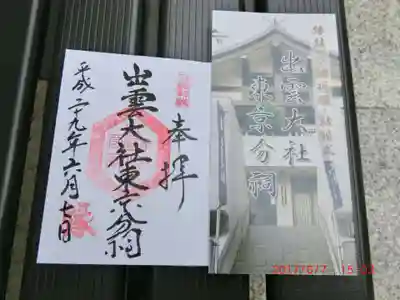 奉拝
出雲大社東京分祠
平成二十九年六月七日
縁
出雲大社
東京分祠
2017/6/7